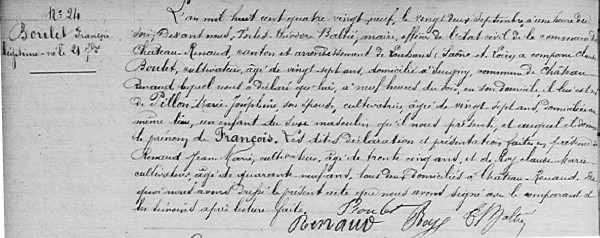 No 24
Boulet François
L'an mil huit cent quatre vingt neuf, le vingt deux septembre à une heure du
soir, Devant nous, maire, officier de l'état civil de la commune de
Château-Renaud, canton et arrondissement de Louhans (Saône et Loire) a comparu Claude
Boulet, cultivateur, âgé de vingt sept ans, domicilié à commune de Château
Renaud lequel nous a déclaré que hier, à neuf heures du soir, en son domicile il lui est né
de Pillon Marie Joséphine son épouse, cultivatrice, âgée de vingt sept ans, domiciliée au
même lieu, un enfant du sexe masculin qu'il nous présente, et auquel il donne
le prénom de François. Les dites déclaration et présentation faites en présence de
Renaud Jean Marie, cultivateur, âgé de trente cinq ans, et de Roy Claude Marie
cultivateur, âgé de quarante neuf ans, tous deux domiciliés à Château-Renaud. De
quoi nous avons dressé le présent acte que nous avons signé avec le comparant et
les témoins après lecture faite.
Boulet
Renaud Roy